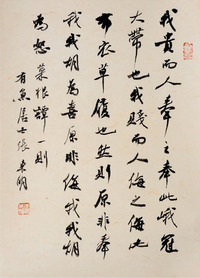 我貴而人奉之奉此峨冠
大帶也我賤而人侮之侮此
布衣草履也然則原非奉
我我胡為喜原非侮我我胡
為怒菜根譚一則
有魚居士張東明